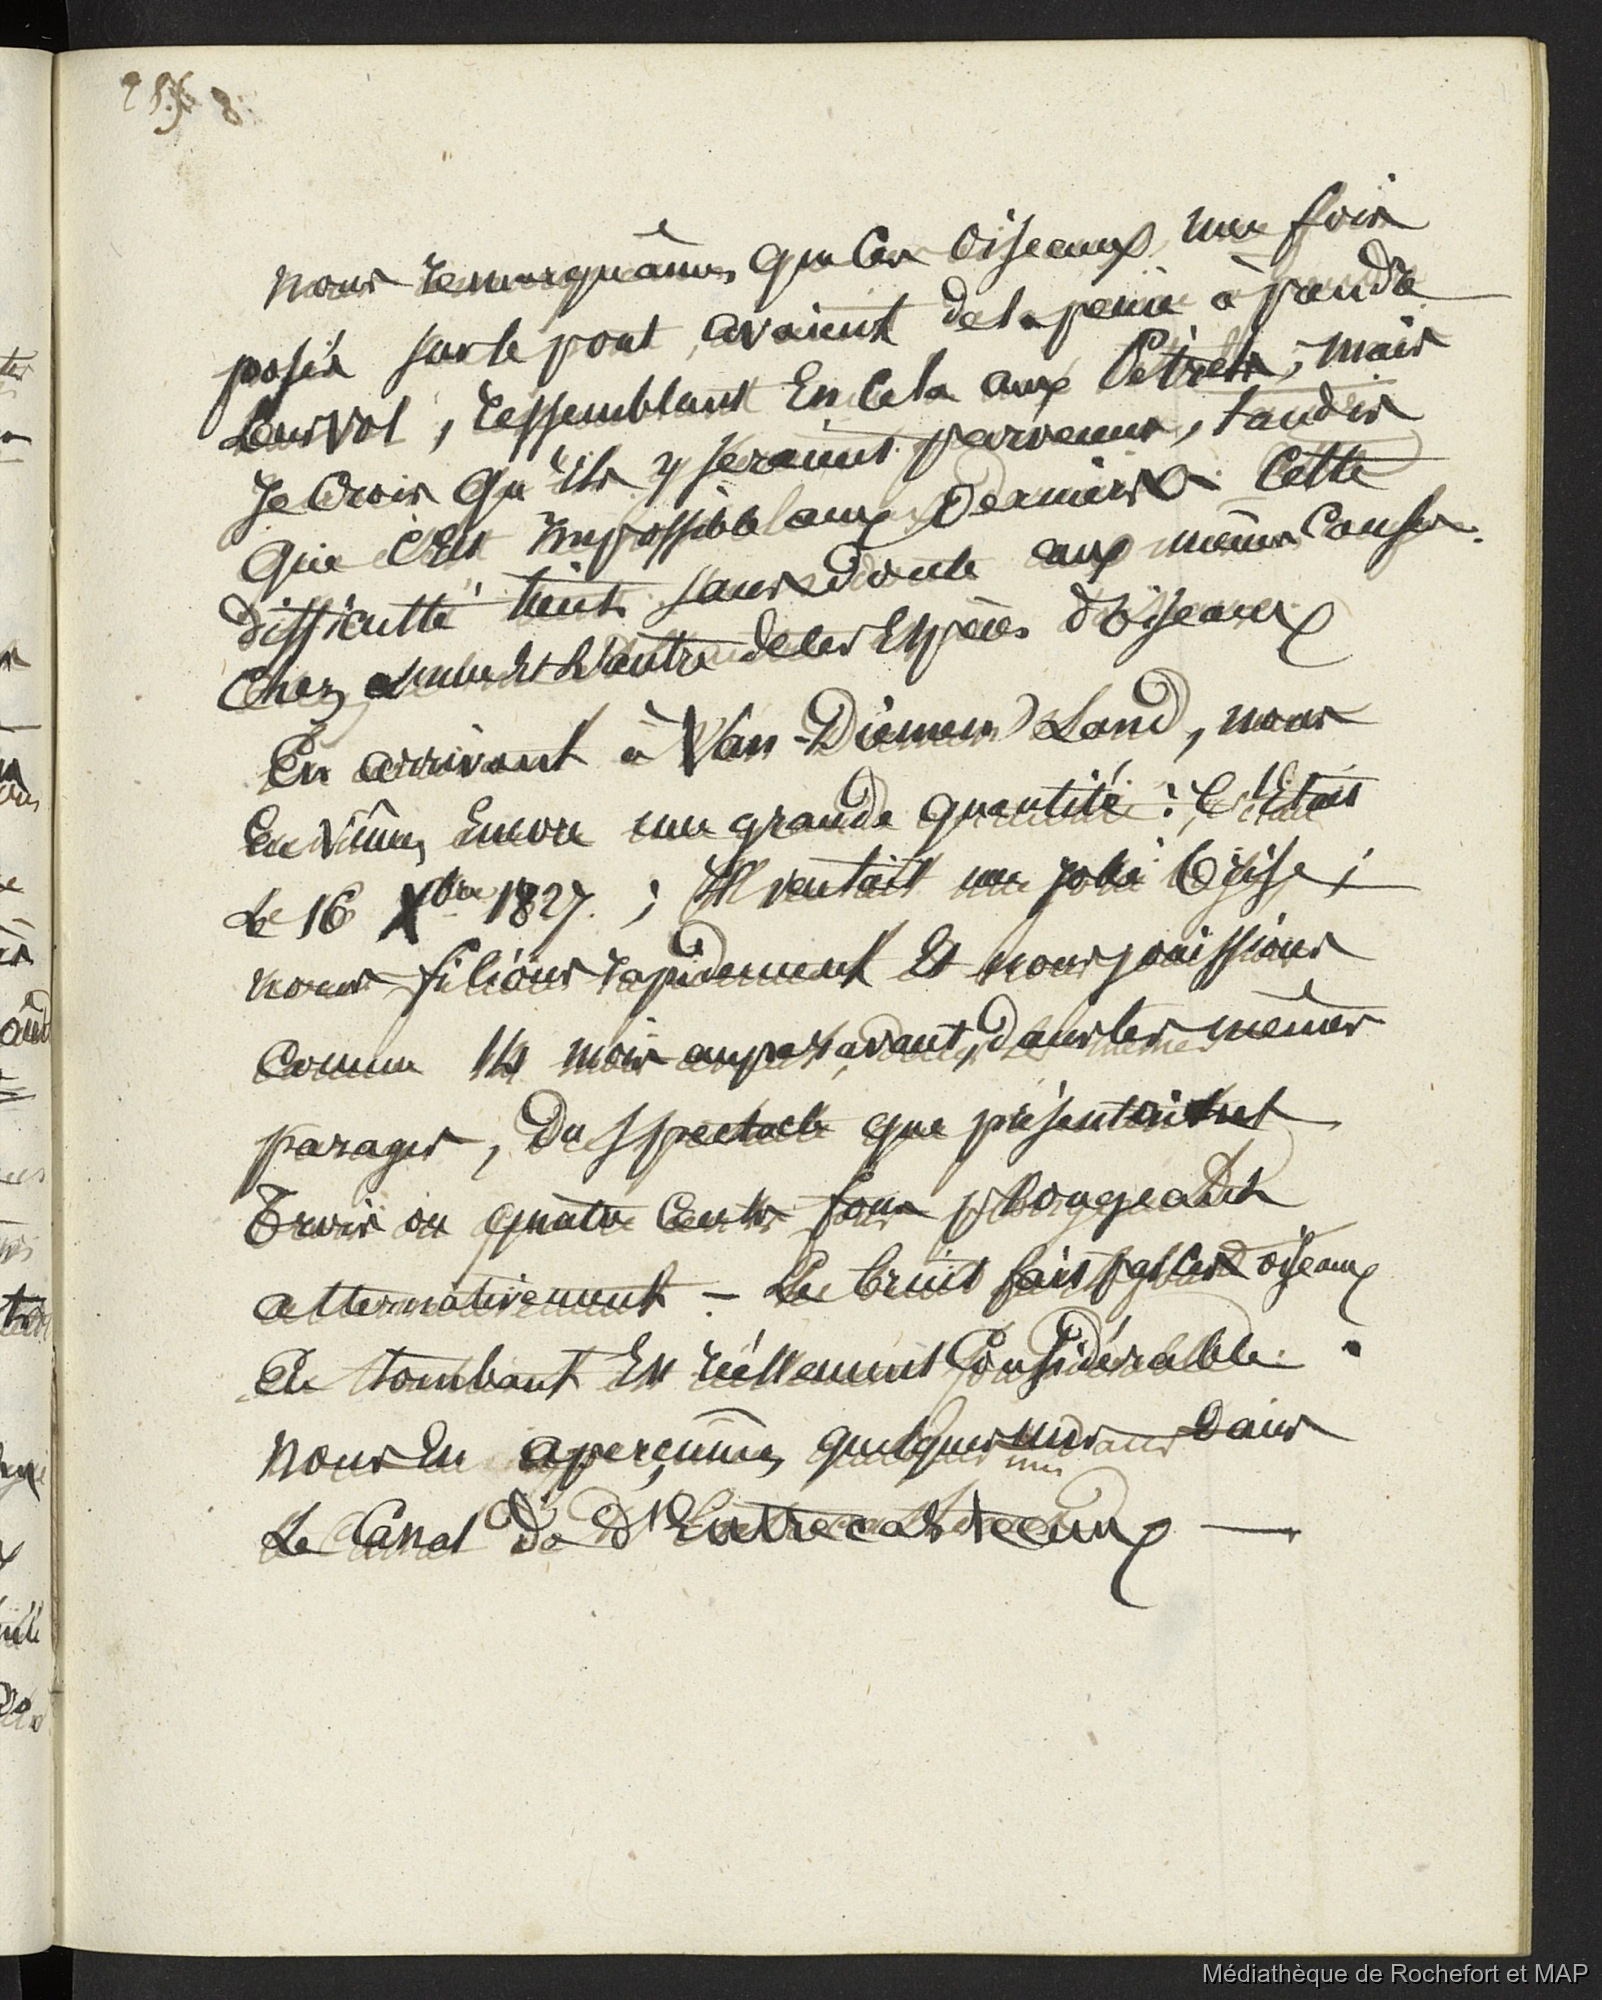 nous remarquâmes que ces oiseaux, une fois
posés sur le pont, avaient de la peine à prendre
leur vol, ressemblant En cela aux Pétrels; mais
Je crois qu'ils y seraient parvenus, tandis
que c'Est impossible aux Derniers. Cette
difficulté tient sans doute aux mêmes Causes
Chez l'une Et L'autre de ces Espèces d'oiseaux
En arrivant à Van-Diemen Land, nous
En vîmes Encore une grande quantité : C'Etait
Le 16 Xbre 1827. ; Il ventait une jolie Brise ;
nous filions rapidement Et nous jouissions
Comme 14 mois auparavant, dans les mêmes
parages, Du Spectacle que présentaient
Trois ou quatre Cents fous plongeant
alternativement – Le bruit fait par ces oiseaux
En tombant Est réellement Considérable.
Nous En aperçûmes quelques uns Dans
uns
Le Canal De D'Entrecasteaux —
Médiathèque de Rochefort et MAP